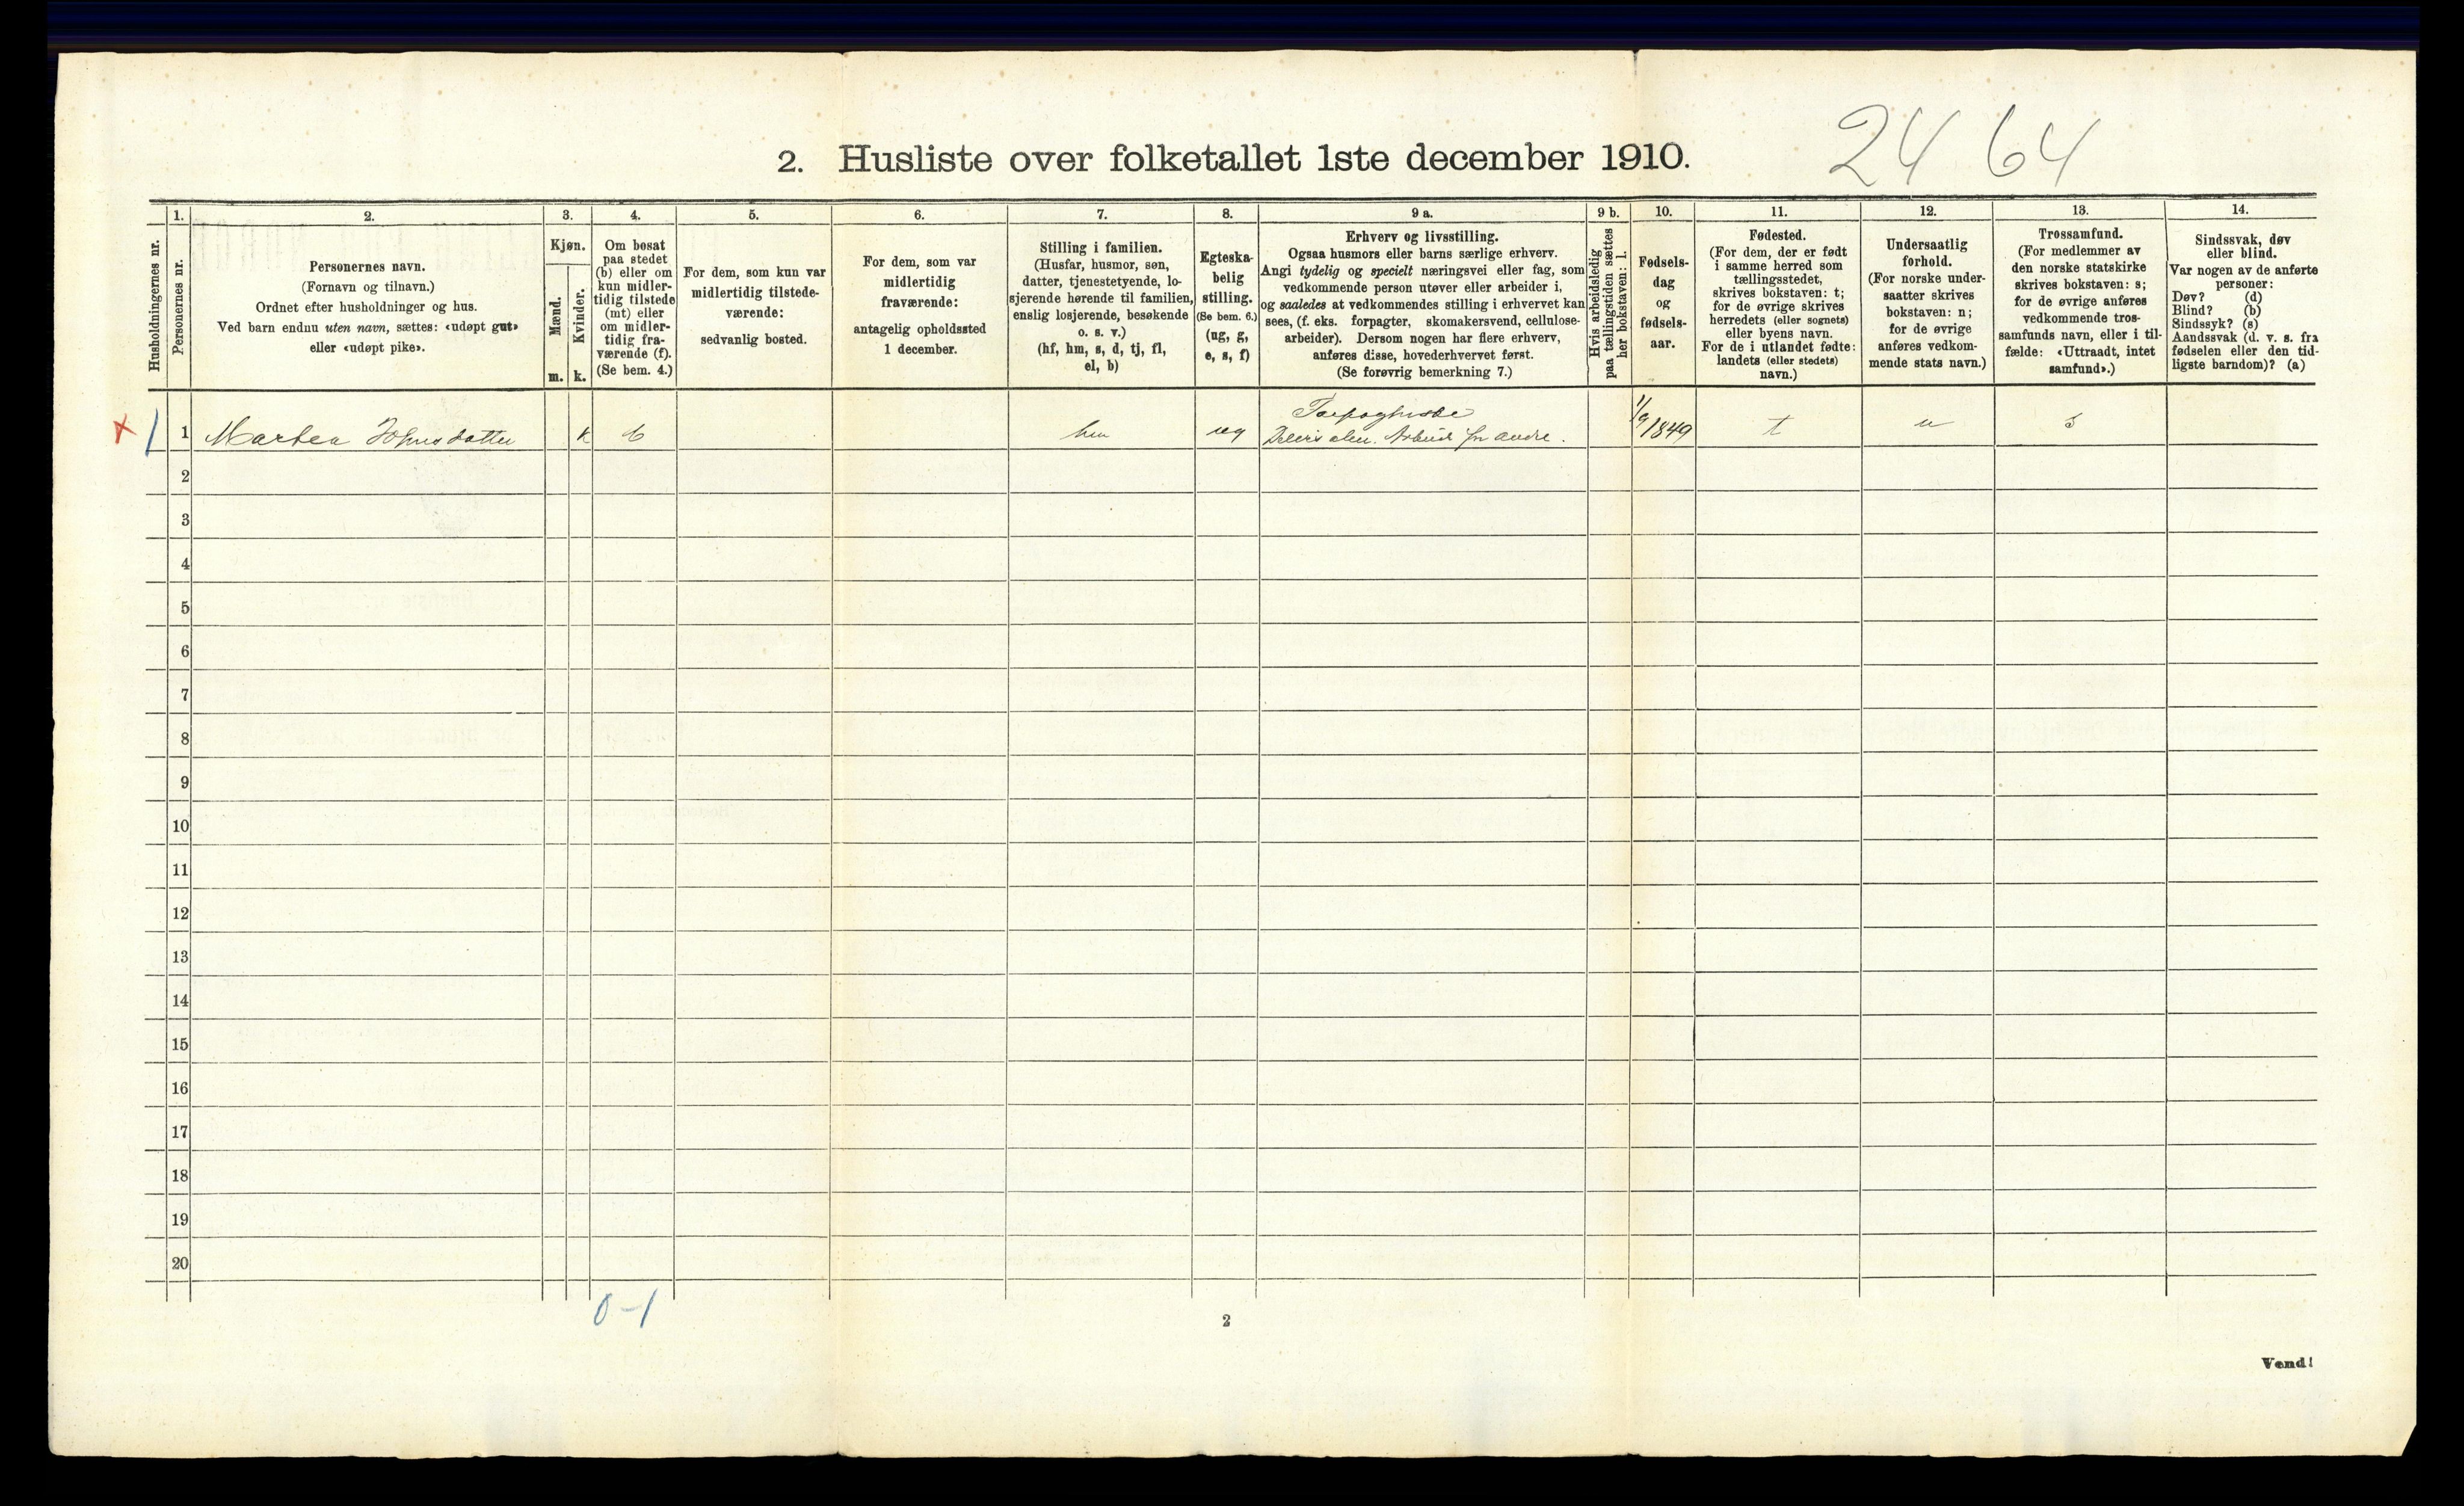 24 64
2. Husliste over folketallet 1ste december 1910.
Husholdningernes nr.
1.
Personernes nr.
2.
Personernes navn.
(Fornavn og tilnavn.)
Ordnet efter husholdninger og hus.
Ved barn endnu uten navn, sættes: «udøpt gut»
eller «udøpt pike».
3.
Kjøn.
Mænd.
m.
Kvinder.
k.
4.
Om bosat
paa stedet
(b) eller om
kun midler-
tidig tilstede
(mt) eller
om midler-
tidig fra-
værende (f).
(Se bem. 4.)
5.
For dem, som kun var
midlertidig tilstede-
værende:
sedvanlig bosted.
6.
For dem, som var
midlertidig
fraværende:
antagelig opholdssted
1 december.
7.
Stilling i familien.
(Husfar, husmor, søn,
datter, tjenestetyende, lo-
sjerende hørende til familien,
enslig losjerende, besøkende
o. s. v.)
(hf, hm, s, d, tj, fl,
el, b)
8.
Egteska-
belig
stilling.
(Se bem. 6.)
(ug, g,
e, s, f)
9 a.
Erhverv og livsstilling.
Ogsaa husmors eller barns særlige erhverv.
Angi tydelig og specielt næringsvei eller fag, som
vedkommende person utøver eller arbeider i,
og saaledes at vedkommendes stilling i erhvervet kan
sees, (f. eks. forpagter, skomakersvend, cellulose-
arbeider). Dersom nogen har flere erhverv,
anføres disse, hovederhvervet først.
(Se forøvrig bemerkning 7.)
9 b.
Hvis arbeidsledig
paa tællingstiden sættes
her bokstaven: l.
10.
Fødsels-
dag
og
fødsels-
aar.
11.
Fødested.
(For dem, der er født
i samme herred som
tællingsstedet,
skrives bokstaven: t;
for de øvrige skrives
herredets (eller sognets)
eller byens navn.
For de i utlandet fødte:
landets (eller stedets)
navn.)
12.
Undersaatlig
forhold.
(For norske under-
saatter skrives
bokstaven: n;
for de øvrige
anføres vedkom-
mende stats navn.)
13.
Trossamfund.
(For medlemmer av
den norske statskirke
skrives bokstaven: s;
for de øvrige anføres
vedkommende tros-
samfunds navn, eller i til-
fælde: «Uttraadt, intet
samfund».)
14.
Sindssvak, døv
eller blind.
Var nogen av de anførte
personer:
Døv? (d)
Blind? (b)
Sindssyk? (s)
Aandssvak (d. v. s. fra
fødselen eller den tid-
ligste barndom)? (a)
x 1 1 Martea Johnsdatter k b hm ug
Arbeid for andre. 1/9 1849 t n s
2
3
4
5
6
7
8
9
10
11
12
13
14
15
16
17
18
19
20
0-1
2
Vend!